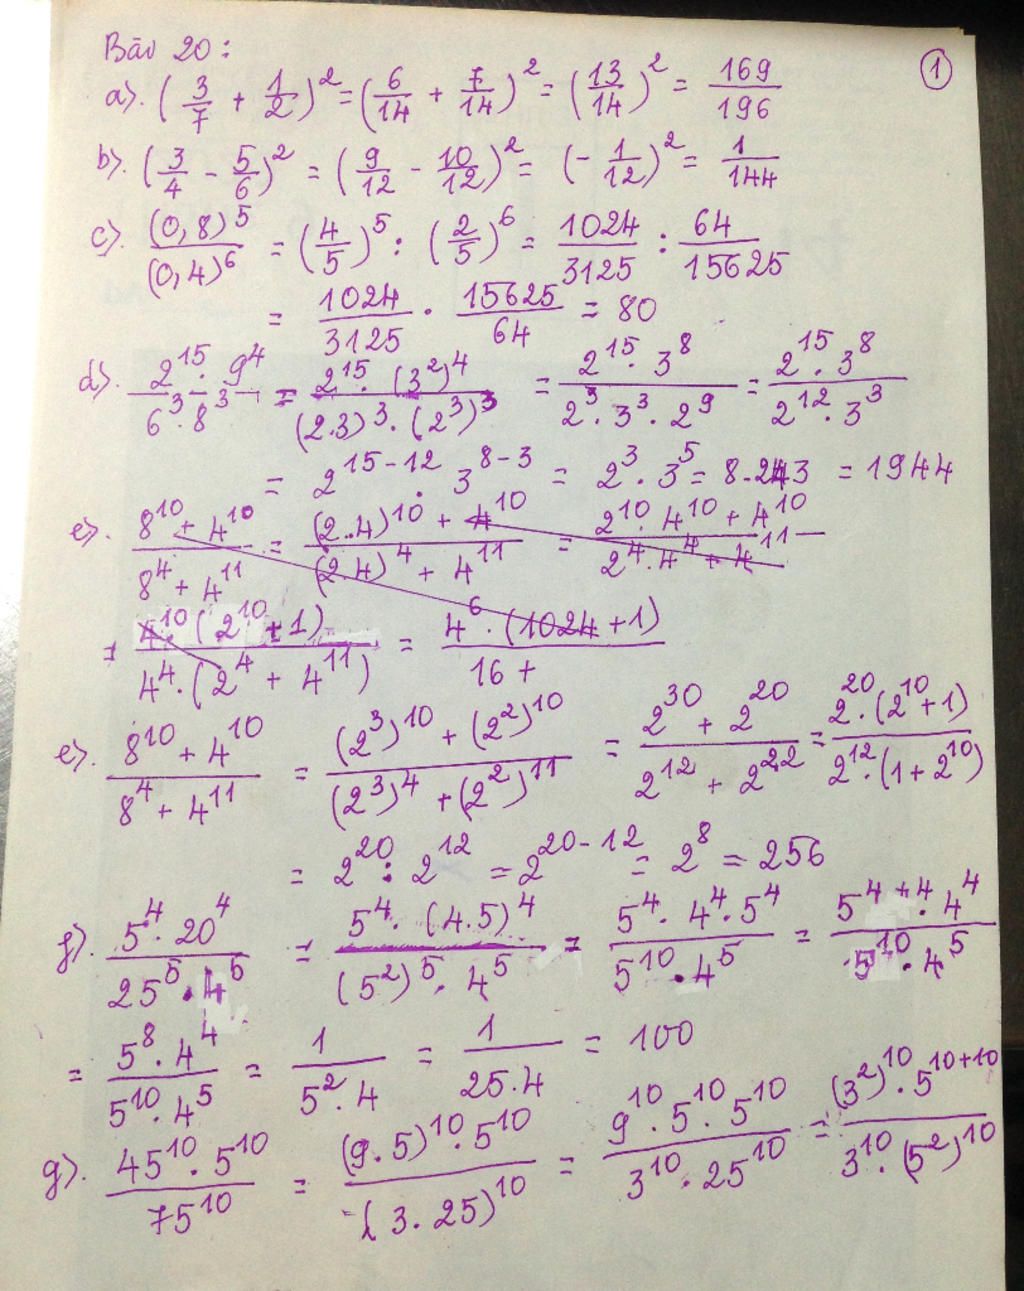 Bài 20:
①
a). (3/7 + 1/2)² = (6/14 + 7/14)² = (13/14)² = 169/196
b). (3/4 - 5/6)² = (9/12 - 10/12)² = (-1/12)² = 1/144
c). (0,8)⁵/(0,4)⁶ = (4/5)⁵ : (2/5)⁶ = 1024/3125 : 64/15625
= 1024/3125 . 15625/64 = 80
d). 2¹⁵.9⁴/6³.8³ = 2¹⁵.(3²)⁴/(2.3)³.(2³)³ = 2¹⁵.3⁸/2³.3³.2⁹ = 2¹⁵.3⁸/2¹².3³
= 2¹⁵⁻¹².3⁸⁻³ = 2³.3⁵ = 8.243 = 1944
e). 8¹⁰+4¹⁰/8⁴+4¹¹ = (2.4)¹⁰+4¹⁰/(2.4)⁴+4¹¹ = 2¹⁰.4¹⁰+4¹⁰/2⁴.4⁴+4¹¹
= 4¹⁰.(2¹⁰+1)/4⁴.(2⁴+4¹¹) = 4⁶.(1024+1)/16+
e). 8¹⁰+4¹⁰/8⁴+4¹¹ = (2³)¹⁰+(2²)¹⁰/(2³)⁴+(2²)¹¹ = 2³⁰+2²⁰/2¹²+2²² = 2²⁰.(2¹⁰+1)/2¹².(1+2¹⁰)
= 2²⁰:2¹² = 2²⁰⁻¹² = 2⁸ = 256
f). 5⁴.20⁴/25⁵.4⁵ = 5⁴.(4.5)⁴/(5²)⁵.4⁵ = 5⁴.4⁴.5⁴/5¹⁰.4⁵ = 5⁴⁺⁴.4⁴/5¹⁰.4⁵
= 5⁸.4⁴/5¹⁰.4⁵ = 1/5².4 = 1/25.4 = 100
g). 45¹⁰.5¹⁰/75¹⁰ = (9.5)¹⁰.5¹⁰/(3.25)¹⁰ = 9¹⁰.5¹⁰.5¹⁰/3¹⁰.25¹⁰ = (3²)¹⁰.5¹⁰⁺¹⁰/3¹⁰.(5²)¹⁰